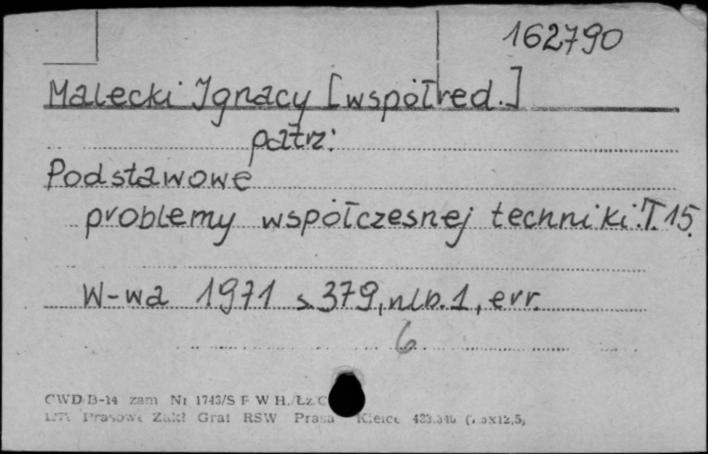 162790
Malecki Ignacy [współred.]
patrz:
Podstawowe
problemy współczesnej techniki. T. 15.
W-wa 1971 s. 379, nlb. 1, err.
6
CWD B-14 zam Nr 1743/S F W H. Łz.C
Prasowe Zakł Graf RSW Prasa Kielce